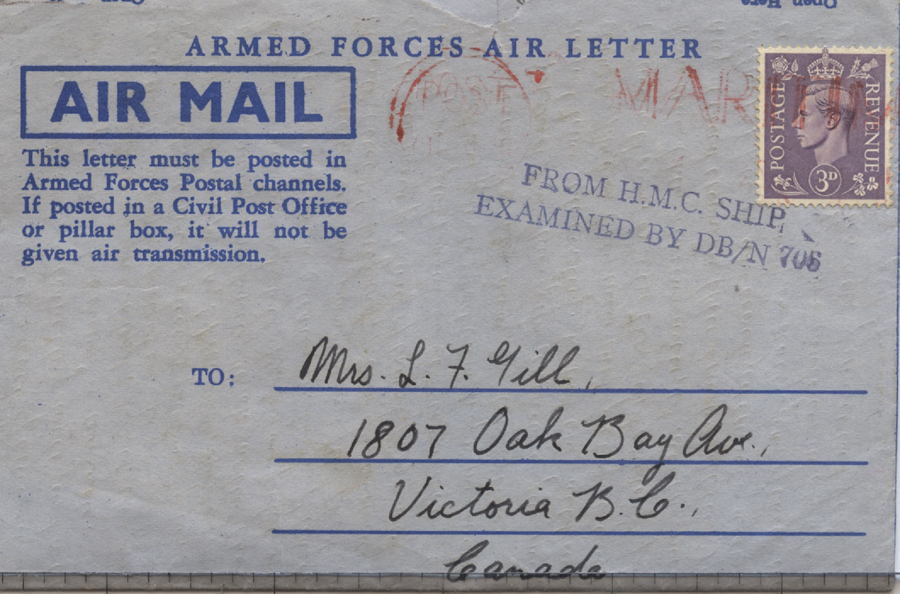 Open Here
ARMED FORCES AIR LETTER
AIR MAIL
This letter must be posted in
Armed Forces Postal channels.
If posted in a Civil Post Office
or pillar box, it will not be
given air transmission.
POST
MAR
POSTAGE
REVENUE
3D
FROM H.M.C. SHIP
EXAMINED BY DB/N 706
TO:
Mrs. L. F. Gill,
1807 Oak Bay Ave.,
Victoria B.C.,
Canada